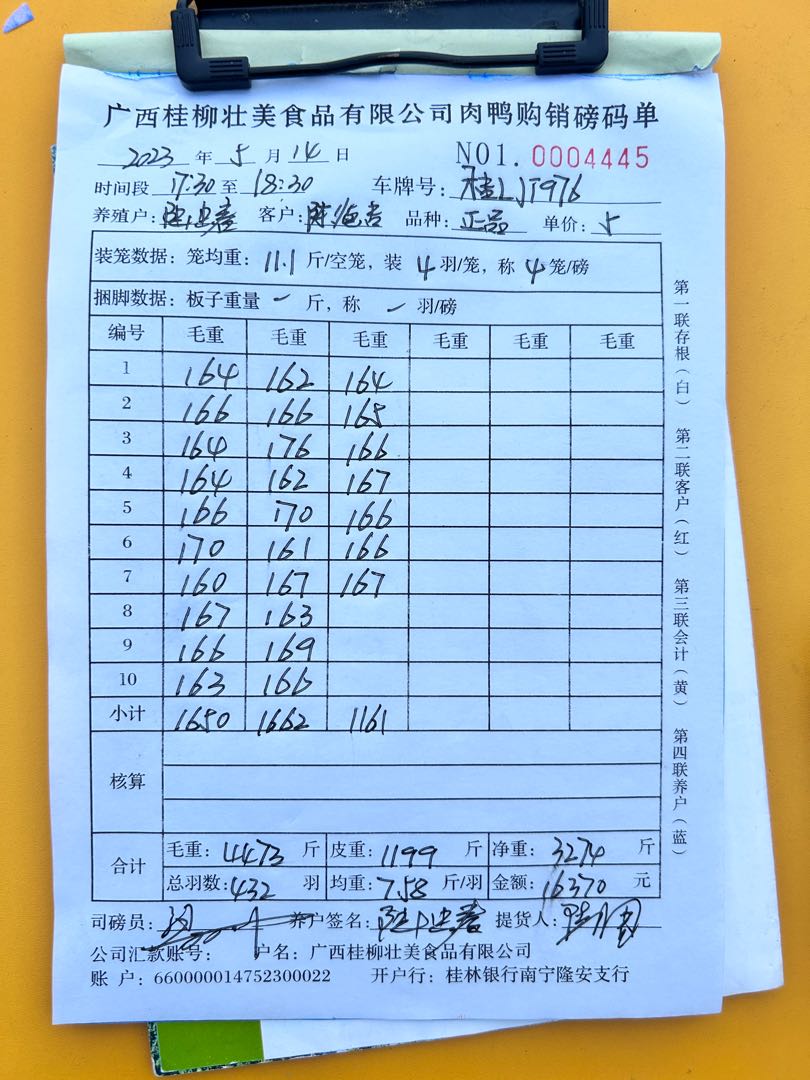 广西桂柳壮美食品有限公司肉鸭购销磅码单
2023 年 5 月 14 日 NO1. 0004445
时间段 17:30 至 18:30 车牌号: 桂LJT976
养殖户: 客户: 品种: 正品 单价: 5
装笼数据: 笼均重: 11.1 斤/空笼, 装 4 羽/笼, 称 4 笼/磅
捆脚数据: 板子重量 - 斤, 称 - 羽/磅
编号 毛重 毛重 毛重 毛重 毛重 毛重
1 164 162 164
2 166 166 165
3 164 176 166
4 164 162 167
5 166 170 166
6 170 161 166
7 160 167 167
8 167 163
9 166 169
10 163 166
小计 1650 1662 1161
核算
合计 毛重: 4473 斤 皮重: 1199 斤 净重: 3274 斤
总羽数: 432 羽 均重: 7.58 斤/羽 金额: 16370 元
司磅员: 养户签名: 提货人:
公司汇款账号: 户名: 广西桂柳壮美食品有限公司
账 户: 660000014752300022 开户行: 桂林银行南宁隆安支行
第一联存根(白) 第二联客户(红) 第三联会计(黄) 第四联养户(蓝)